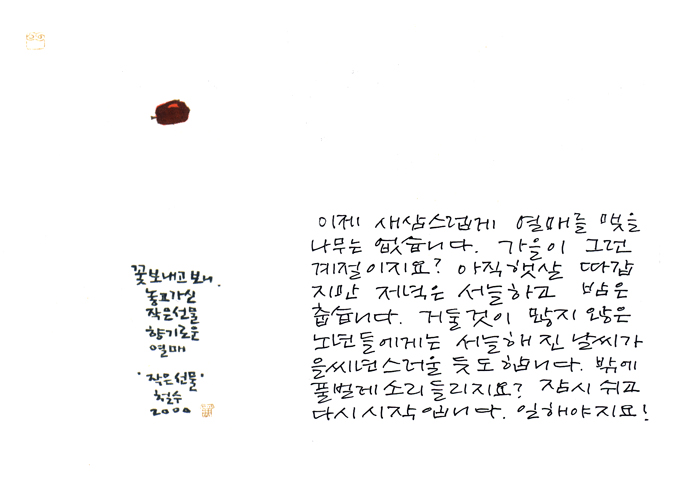 꽃 보내고 보니,
놓고 가신
작은 선물
향기로운
열매
'작은 선물'
철수
2000
이제 새삼스럽게 열매를 맺을
나무는 없습니다. 가을이 그런
계절이지요? 아직 햇살 따갑
지만 저녁은 서늘하고 밤은
춥습니다. 거둘것이 많지 않은
뇌년들에게는 서늘해진 날씨가
을씨년스러울 듯도 합니다. 밖에
풀벌레소리 들리지요? 잠시 쉬고
다시 시작입니다. 일해야지요!